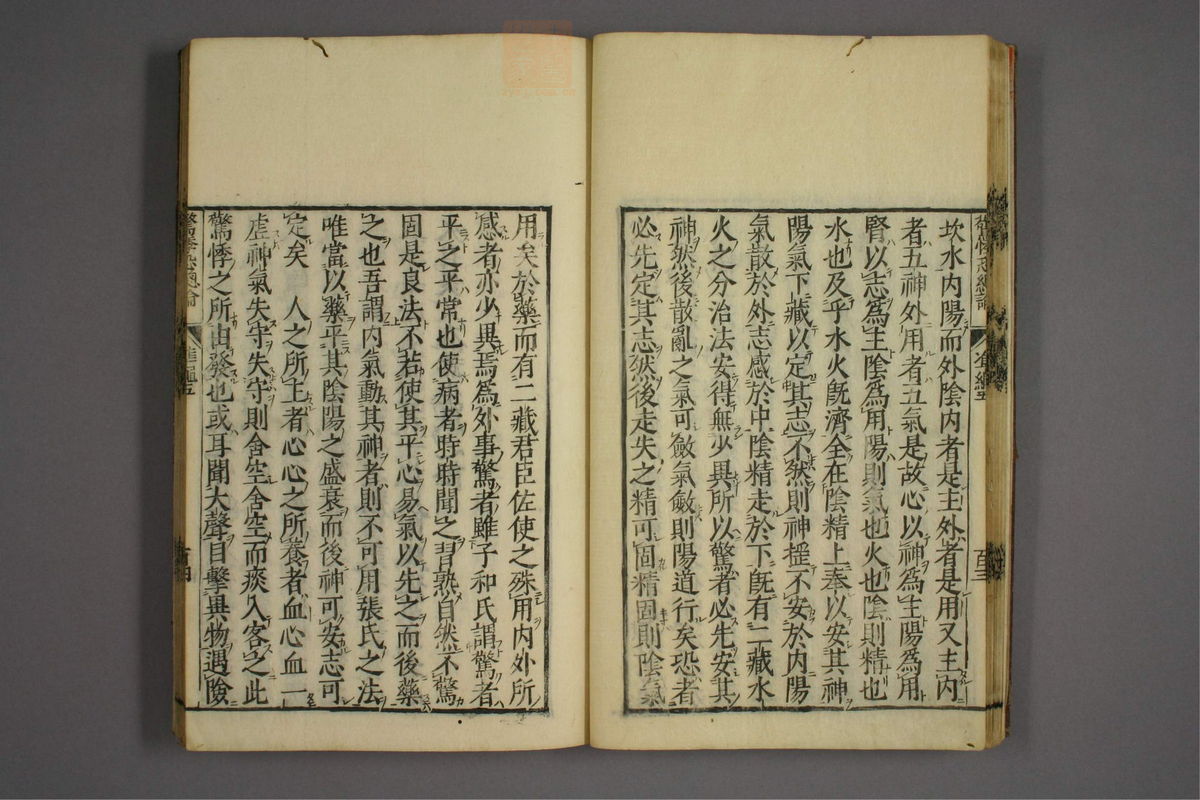 坎水内陽而外陰内者是主外者是用又主内
者五神外用者五氣是故心以神爲主陽爲用
腎以志爲主陰爲用陽則氣也火也陰則精也
水也及乎水火旣濟全在陰精上奉以安其神
陽氣下藏以定其志不然則神揺不安於内陽
氣散於外志感於中陰精走於下旣有二藏水
火之分治法安得無少異所以驚者必先安其
神然後散亂之氣可斂氣斂則陽道行矣恐者
必先定其志然後走失之精可固精固則陰氣
用矣於藥而有二藏君臣佐使之殊用内外所
感者亦少異焉爲外事驚者雖子和氏謂驚者
平之平常也使病者時時聞之習熟自然不驚
固是良法不若使其平心易氣以先之而後藥
之也吾謂内氣動其神者則不可用張氏之法
唯當以藥平其陰陽之盛衰而後神可安志可
定矣　人之所主者心心之所養者血心血一
虛神氣失守失守則舍空舍空而痰入客之此
驚悸之所由發也或耳聞大聲目擊異物遇險
驚悸恐總論
百三